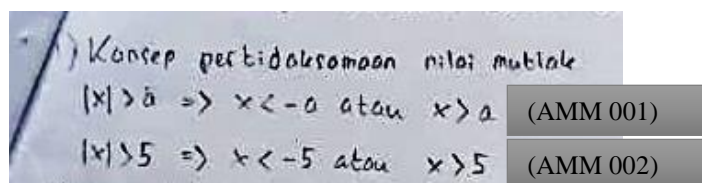 ) Konsep pertidaksamaan nilai mutlak
|x| > a => x < -a atau x > a (AMM 001)
|x| > 5 => x < -5 atau x > 5 (AMM 002)